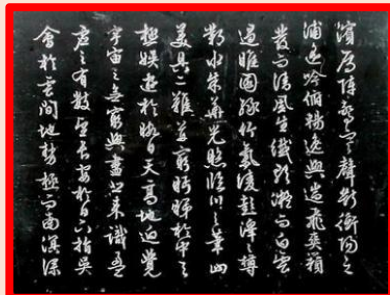 濱雁陣驚寒聲斷衡陽之
浦遥吟俯暢逸興遄飛爽籟
發而清風生纖歌凝而白雲
遏睢園緑竹氣凌彭澤之樽
鄴水朱華光照臨川之筆四
美具二難並窮睇眄於中天
極娱遊於暇日天高地迥覺
宇宙之無窮興盡悲來識盈
虚之有數望長安於日下指吴
會於雲間地勢極而南溟深